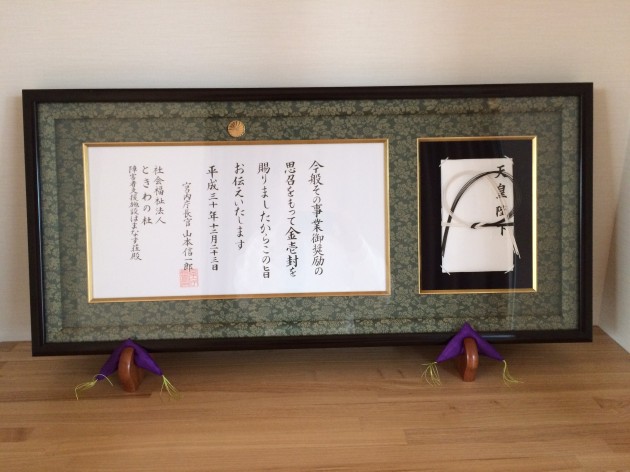 今般その事業御奨励の
思召をもって金壱封を
賜りましたからこの旨
お伝えいたします
平成三十年十二月二十三日
宮内庁長官 山本信一郎
社会福祉法人
ときわの杜
障害者支援施設はまなす荘殿
天皇陛下